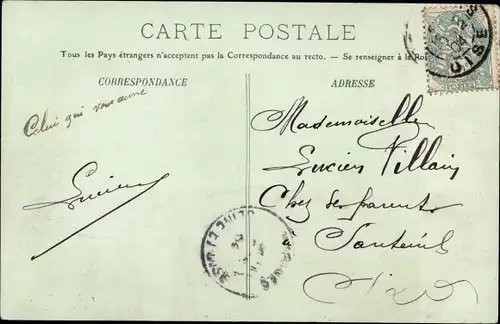 CARTE POSTALE
Tous les Pays étrangers n'acceptent pas la Correspondance au recto. — Se renseigner à la
CORRESPONDANCE
ADRESSE
Celui qui vous aime
Lucien
Mademoiselle
Lucien Villain
Chez ses parents
Santeuil
OISE
SEINE ET OISE